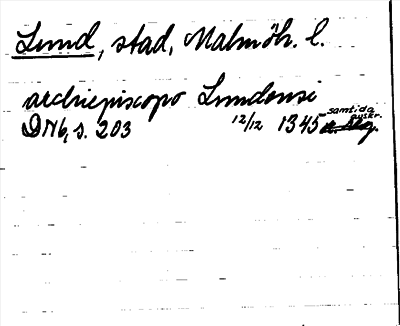 Lund, stad, Malmöh. l.
archiepiscopo Lundensi
samtida
avskr.
DN 6, s. 203 12/12 1345